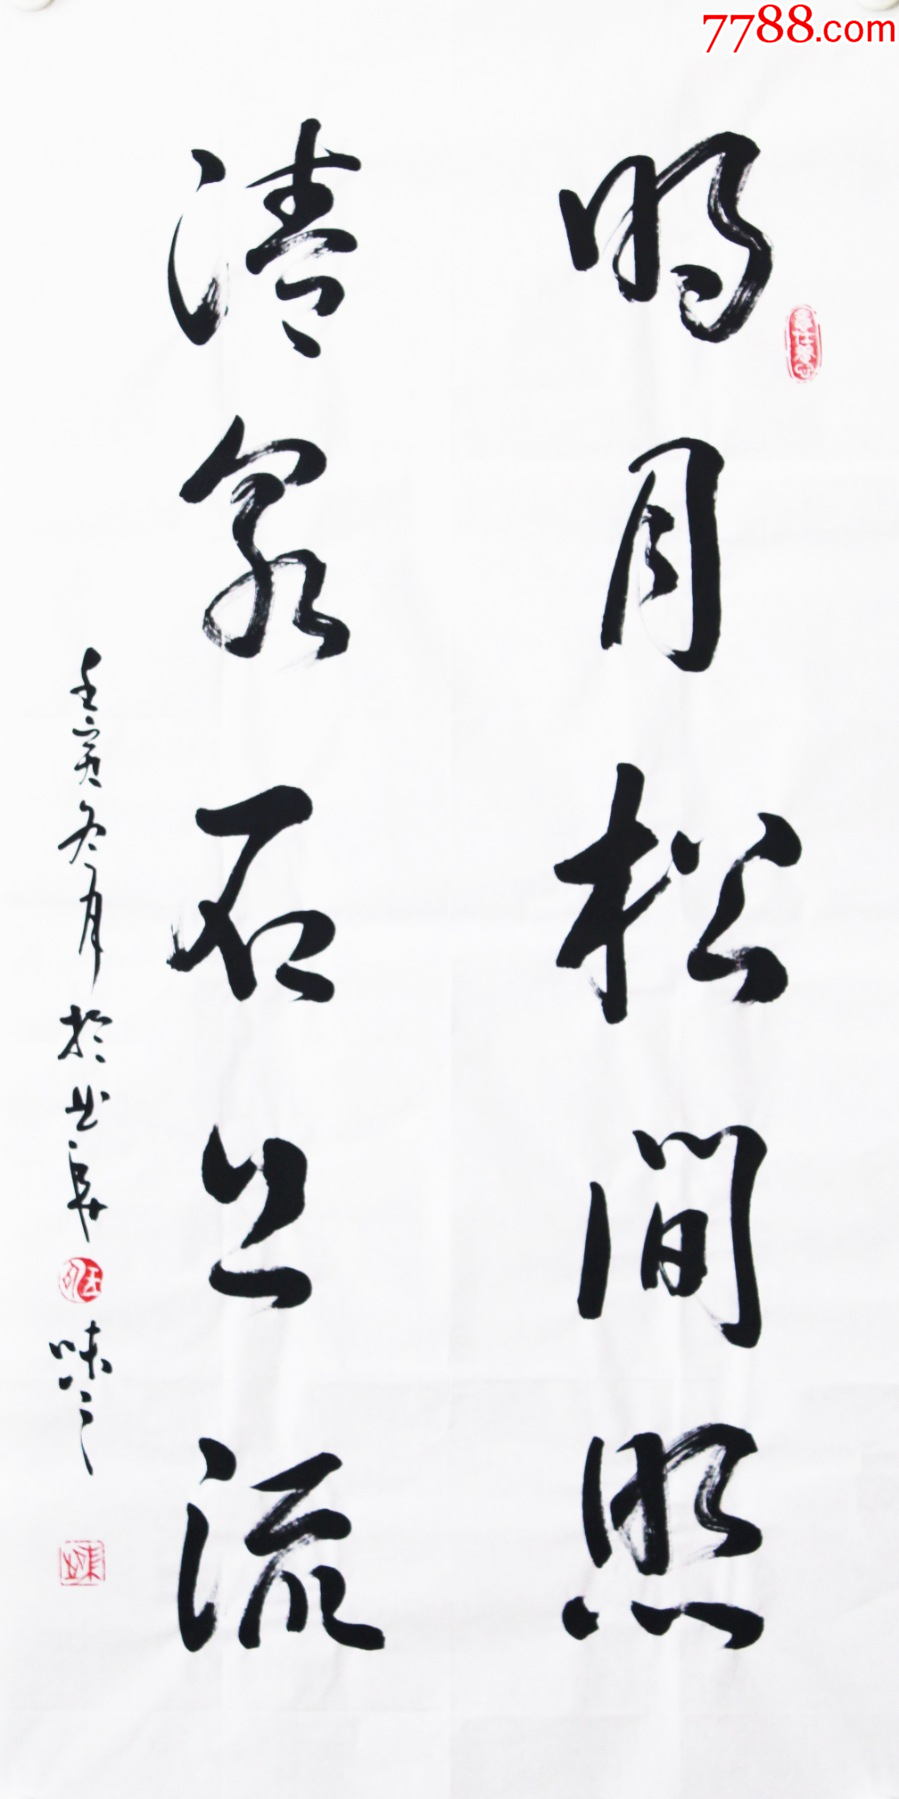 7788.com
明月松間照
清泉石上流
壬寅冬月於曲阜